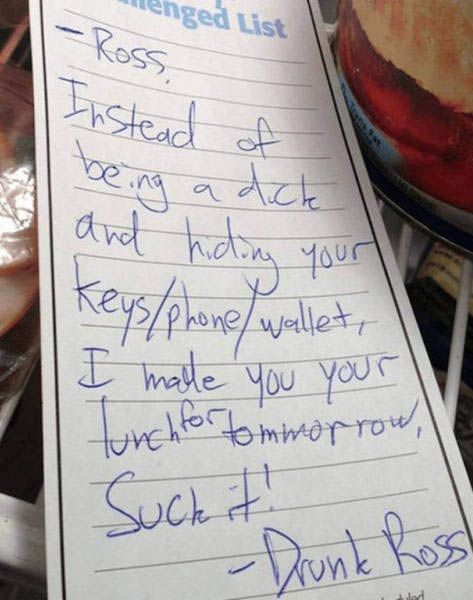 lenged List
- Ross,
Instead of
being a dick
and hiding your
keys/phone/wallet,
I made you your
lunch for tommorrow,
Suck it!
- Drunk Ross